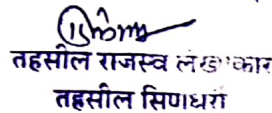 तहसील राजस्व लेखाकार
तहसील सिणधरी